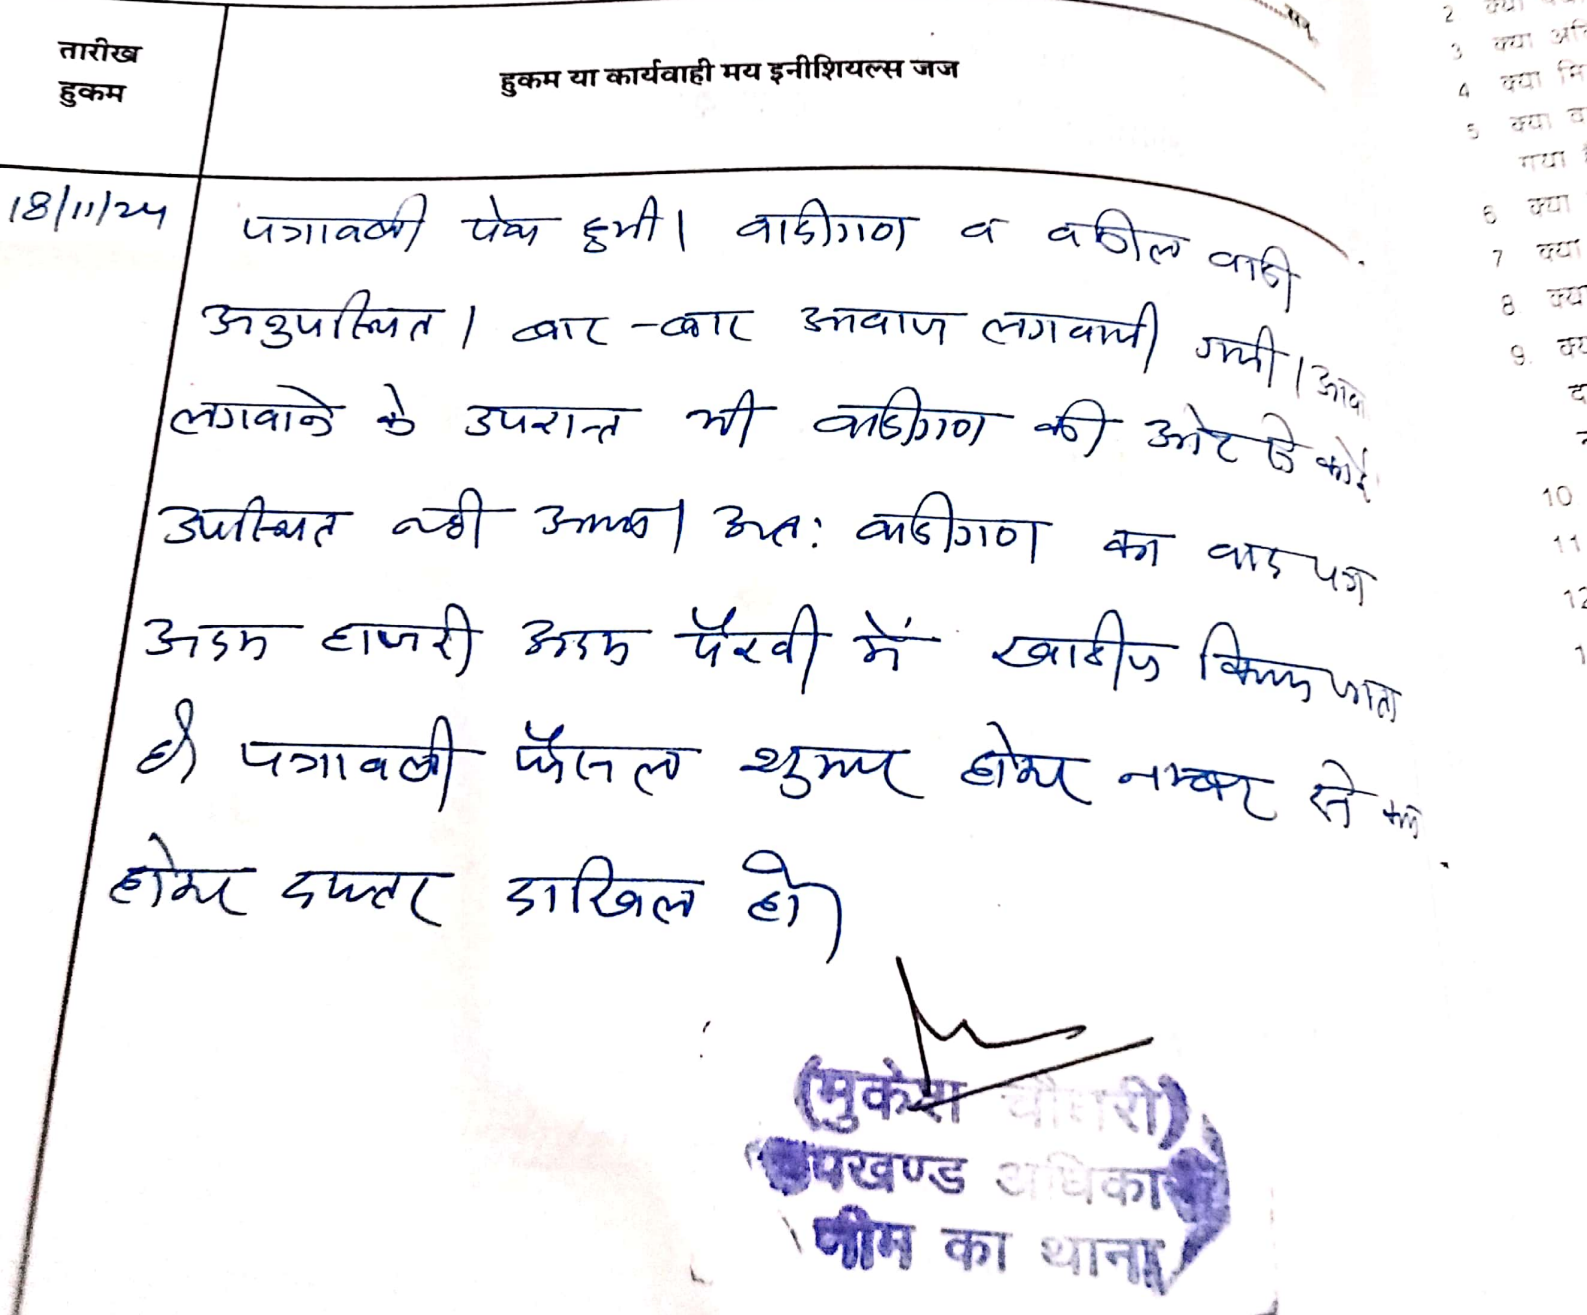 तारीख
हुकम
हुकम या कार्यवाही मय इनीशियल्स जज
18/11/24
पत्रावली पेश हुयी। वादीगण व वकील वादी
अनुपस्थित। बार-बार आवाज लगवायी गयी। आवा
लगवाने के उपरान्त भी वादीगण की ओर से कोई
उपस्थित नही आया। अतः वादीगण का वाद पत्र
अदम हाजरी अदम पैरवी में खारीज किया जाता
है। पत्रावली फैसल शुमार होकर नम्बर से कम
होकर दफ्तर दाखिल हो।
(मुकेश चौधरी)
उपखण्ड अधिकारी
नीम का थाना
2 क्या
3 क्या
4 क्या
5 क्या
गया
6 क्या
7 क्या
8 क्या
9.
10
11
12